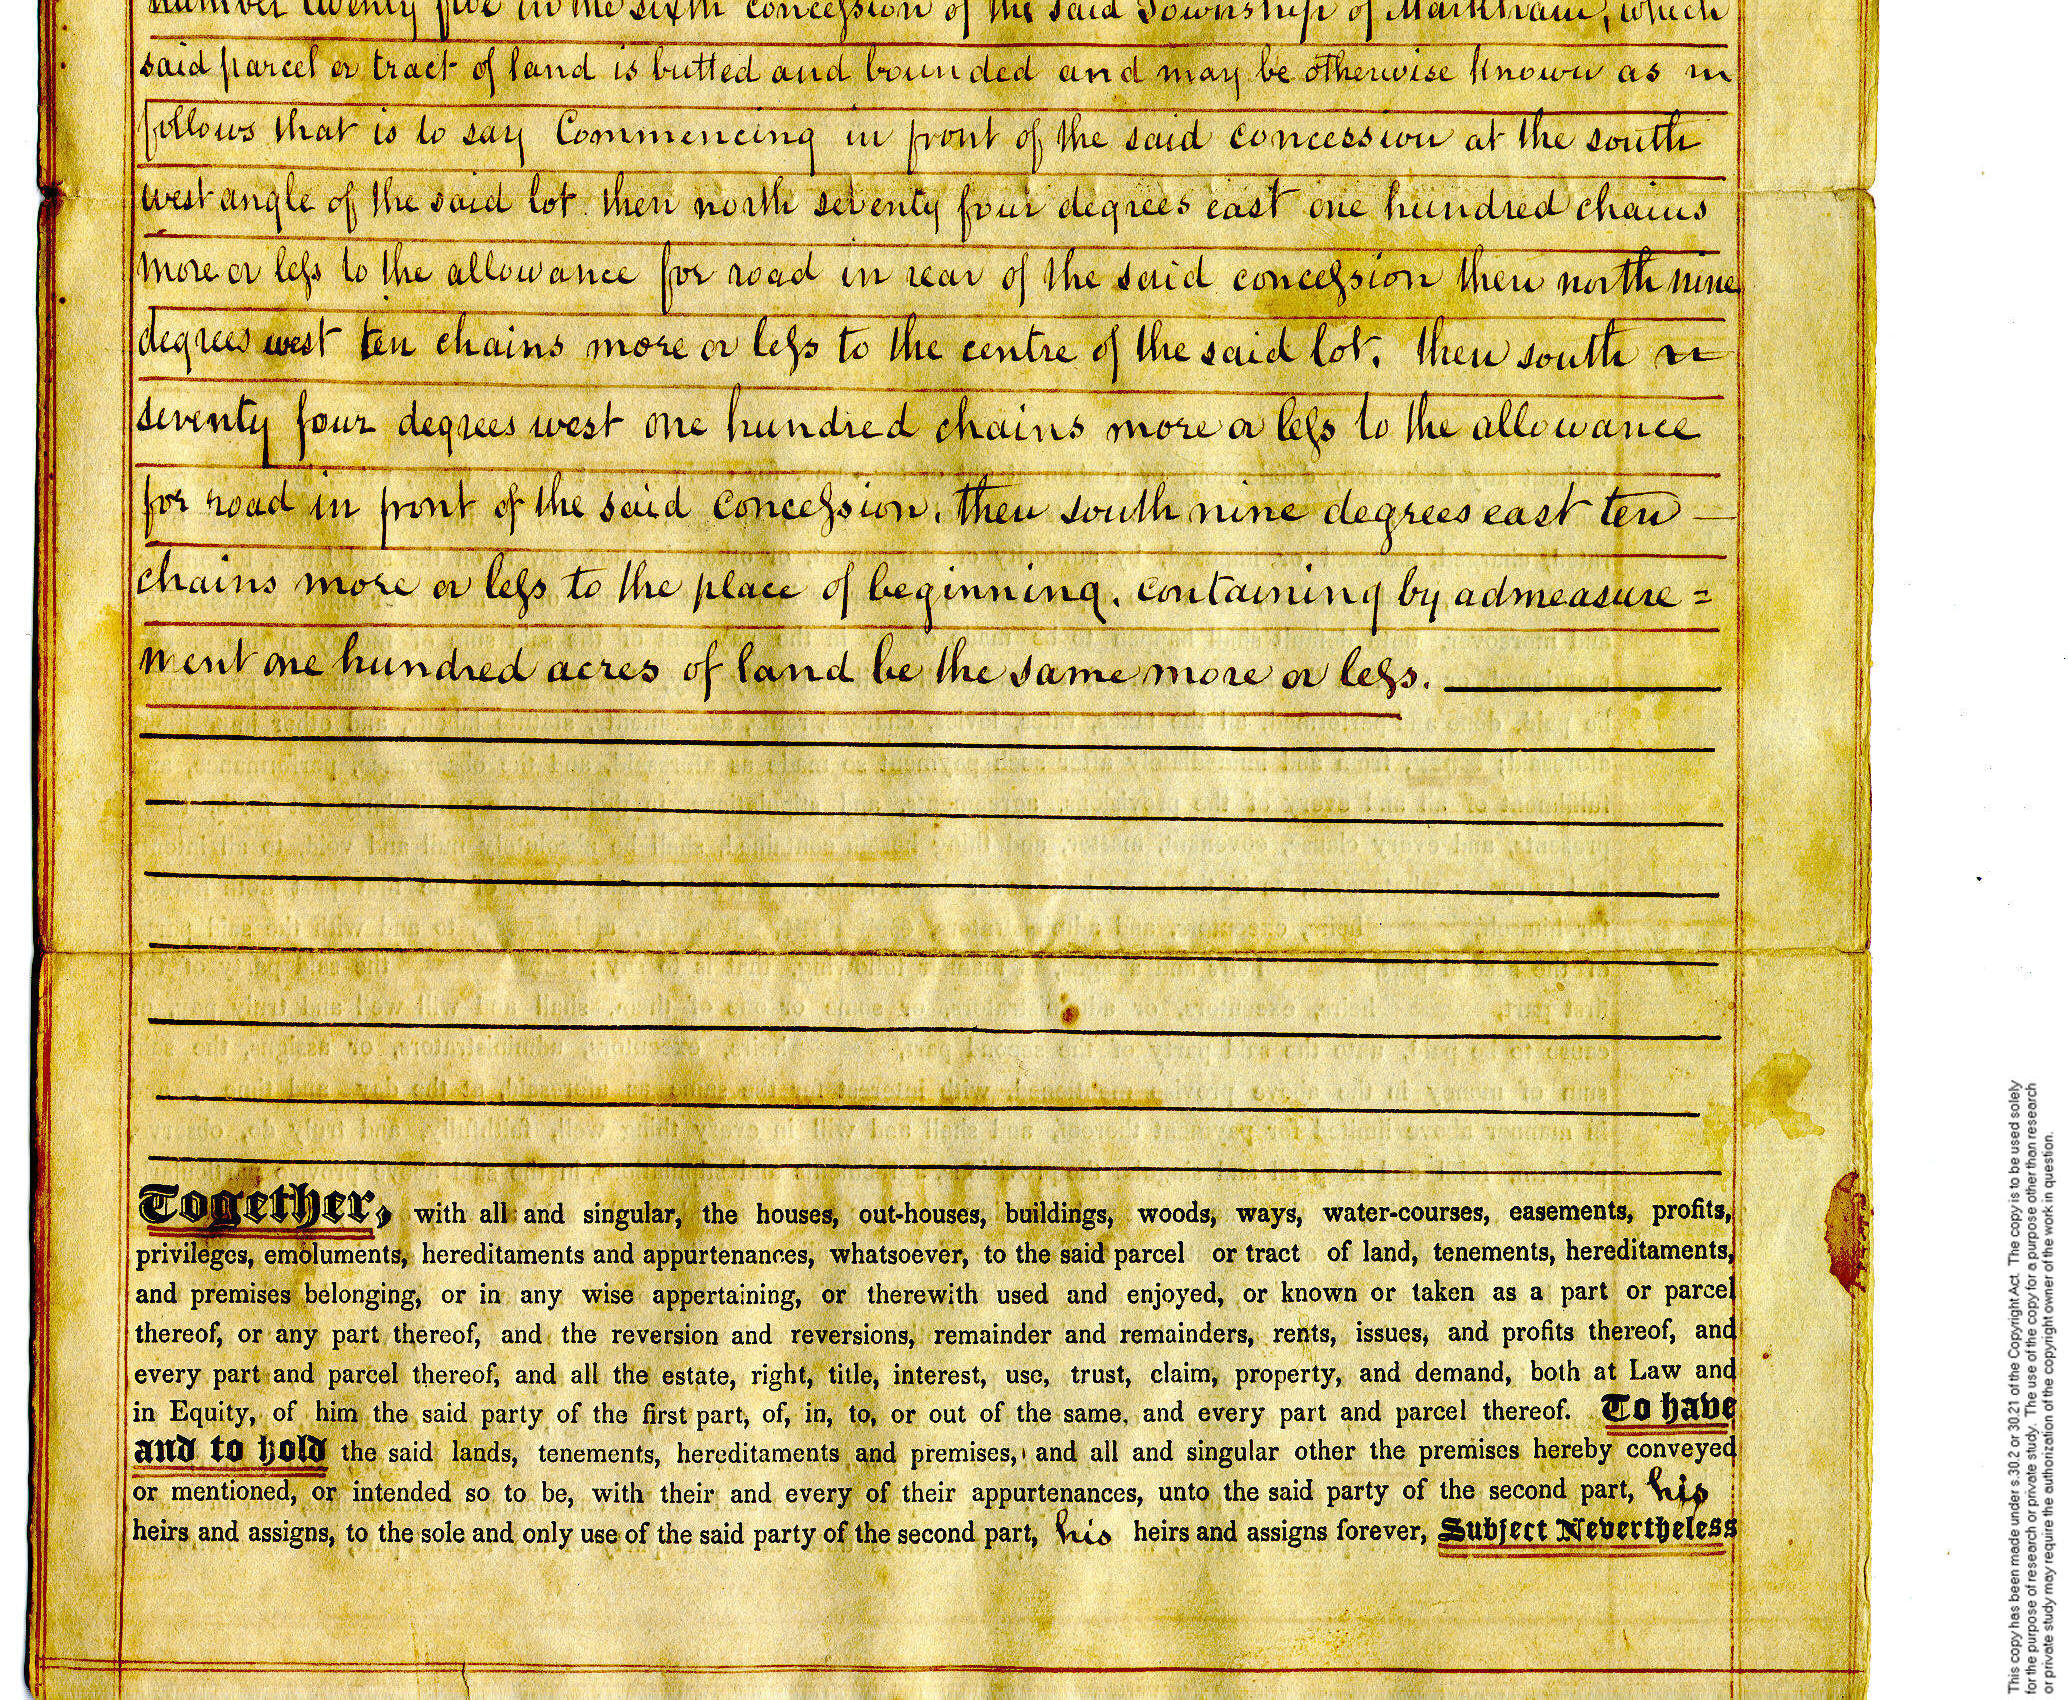 number twenty five in the sixth concession of the said Township of Markham, which
said parcel or tract of land is butted and bounded and may be otherwise known as
follows that is to say Commencing in front of the said concession at the south
west angle of the said lot then north seventy four degrees east one hundred chains
more or less to the allowance for road in rear of the said concession then north nine
degrees west ten chains more or less to the centre of the said lot. then south
seventy four degrees west one hundred chains more or less to the allowance
for road in front of the said concession. then south nine degrees east ten —
chains more or less to the place of beginning. containing by admeasure=
ment one hundred acres of land be the same more or less.
Together, with all and singular, the houses, out-houses, buildings, woods, ways, water-courses, easements, profits,
privileges, emoluments, hereditaments and appurtenances, whatsoever, to the said parcel or tract of land, tenements, hereditaments,
and premises belonging, or in any wise appertaining, or therewith used and enjoyed, or known or taken as a part or parcel
thereof, or any part thereof, and the reversion and reversions, remainder and remainders, rents, issues, and profits thereof, and
every part and parcel thereof, and all the estate, right, title, interest, use, trust, claim, property, and demand, both at Law and
in Equity, of him the said party of the first part, of, in, to, or out of the same, and every part and parcel thereof. To have
and to hold the said lands, tenements, hereditaments and premises, and all and singular other the premises hereby conveyed
or mentioned, or intended so to be, with their and every of their appurtenances, unto the said party of the second part, his
heirs and assigns, to the sole and only use of the said party of the second part, his heirs and assigns forever, Subject Nevertheless
This copy has been made under s.30.2 or 30.21 of the Copyright Act. The copy is to be used solely
for the purpose of research or private study. The use of the copy for a purpose other than research
or private study may require the authorization of the copyright owner of the work in question.